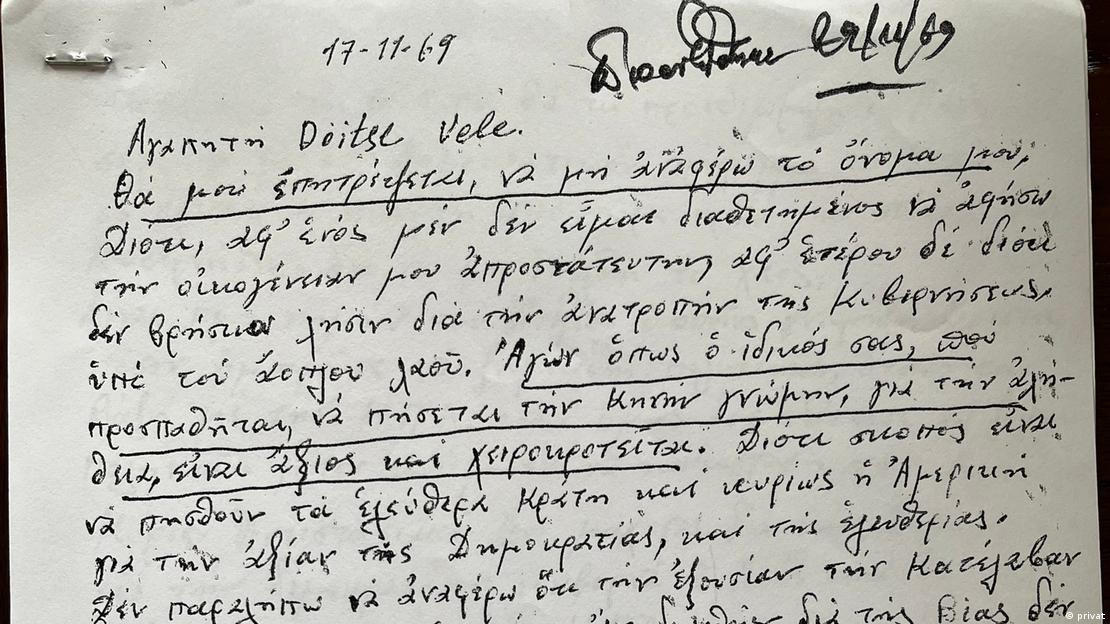 17-11-69
29/11/69
Αγαπητή Doitse Vele.
Θά μού ἐπητρέψεται, νά μή ἀναφέρω τό ὄνομα μου,
Διότι, ἀφ' ἑνός μέν δέν εἶμαι διαθετημένος νά ἀφήσω
τήν οἰκογένειαν μου ἀπροστάτευτην, ἀφ' ἑτέρου δέ διότι
δέν βρήσκω λήσιν διά τήν ἀνατροπήν τῆς Κυβερνήσεως,
ὑπό τοῦ ἄοπλου λαοῦ. Ἀγών ὅπως ὁ ἰδικός σας, πού
προσπαθῆται, νά πήσεται τήν Κηνήν γνώμην, γιά τήν ἀλή-
θεια, εἶναι ἄξιος καί χειροκροτεῖται. Διότι σκοπός εἶναι
νά πησθοῦν τά ἐλεύθερα Κράτη καί κυρίως ἡ Ἀμερική
γιά τήν ἀξίαν τῆς Δημοκρατίας, καί τῆς ἐλευθερίας.
Δέν παραλήπω νά ἀναφέρω ὅτι τήν ἐξουσίαν τήν Κατέλαβαν
διά τῆς Βίας δέν
© privat